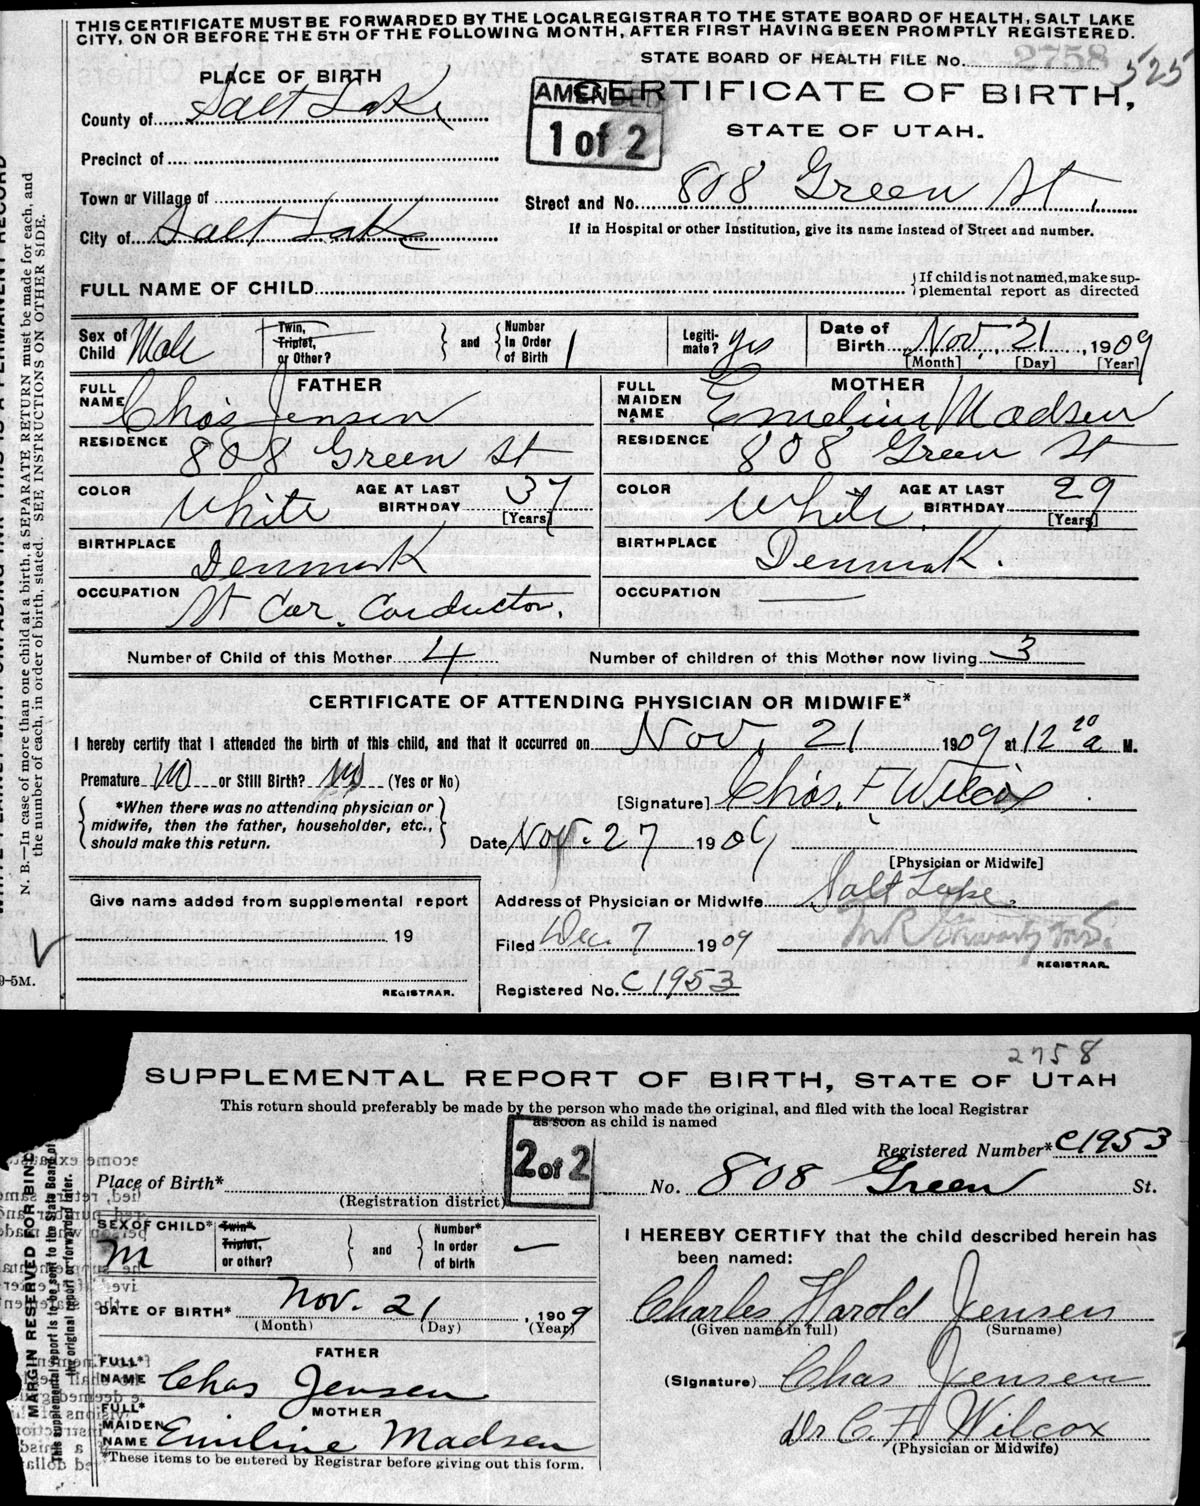 THIS CERTIFICATE MUST BE FORWARDED BY THE LOCAL REGISTRAR TO THE STATE BOARD OF HEALTH, SALT LAKE
CITY, ON OR BEFORE THE 5TH OF THE FOLLOWING MONTH, AFTER FIRST HAVING BEEN PROMPTLY REGISTERED.
STATE BOARD OF HEALTH FILE No. 2758 525
PLACE OF BIRTH
AMENDED
1 of 2
CERTIFICATE OF BIRTH,
STATE OF UTAH.
County of Salt Lake
Precinct of
Town or Village of
Street and No. 808 Green St.
City of Salt Lake
If in Hospital or other Institution, give its name instead of Street and number.
FULL NAME OF CHILD
If child is not named, make sup-
plemental report as directed
Sex of Child Male
Twin, Triplet, or Other?
and
Number In Order of Birth 1
Legiti-mate? Yes
Date of Birth Nov. 21, 1909
[Month] [Day] [Year]
FATHER
FULL NAME Chas Jensen
MOTHER
FULL MAIDEN NAME Emeline Madsen
RESIDENCE 808 Green St
RESIDENCE 808 Green St
COLOR White AGE AT LAST BIRTHDAY 37 [Years]
COLOR White AGE AT LAST BIRTHDAY 29 [Years]
BIRTHPLACE Denmark
BIRTHPLACE Denmark.
OCCUPATION St Car. Conductor.
OCCUPATION
Number of Child of this Mother 4 Number of children of this Mother now living 3
CERTIFICATE OF ATTENDING PHYSICIAN OR MIDWIFE*
I hereby certify that I attended the birth of this child, and that it occurred on Nov. 21 1909 at 12 20 a M.
Premature No or Still Birth? No (Yes or No)
[Signature] Chas. F Wilcox
*When there was no attending physician or
midwife, then the father, householder, etc.,
should make this return.
Date Nov. 27 1909
[Physician or Midwife]
Give name added from supplemental report
19
REGISTRAR.
Address of Physician or Midwife Salt Lake.
Filed Dec. 7 1909
REGISTRAR.
Registered No. C1953
N. B.—In case of more than one child at a birth, a SEPARATE RETURN must be made for each, and
the number of each, in order of birth, stated. SEE INSTRUCTIONS ON OTHER SIDE.
9-5M.
2758
SUPPLEMENTAL REPORT OF BIRTH, STATE OF UTAH
This return should preferably be made by the person who made the original, and filed with the local Registrar
as soon as child is named
2 of 2
Registered Number* C1953
Place of Birth*
(Registration district)
No. 808 Green St.
SEX OF CHILD* M
Twin* Triplet, or other?
and
Number* In order of birth —
I HEREBY CERTIFY that the child described herein has
been named:
DATE OF BIRTH* Nov. 21, 1909
(Month) (Day) (Year)
Charles Harold Jensen
(Given name in full) (Surname)
FATHER
FULL* NAME Chas Jensen
(Signature) Chas Jensen
MOTHER
FULL* MAIDEN NAME Emiline Madsen
Dr C. F. Wilcox
(Physician or Midwife)
*These items to be entered by Registrar before giving out this form.
MARGIN RESERVED FOR BINDING
This supplemental report is to be sent to the State Board of
the original report is forwarded later.